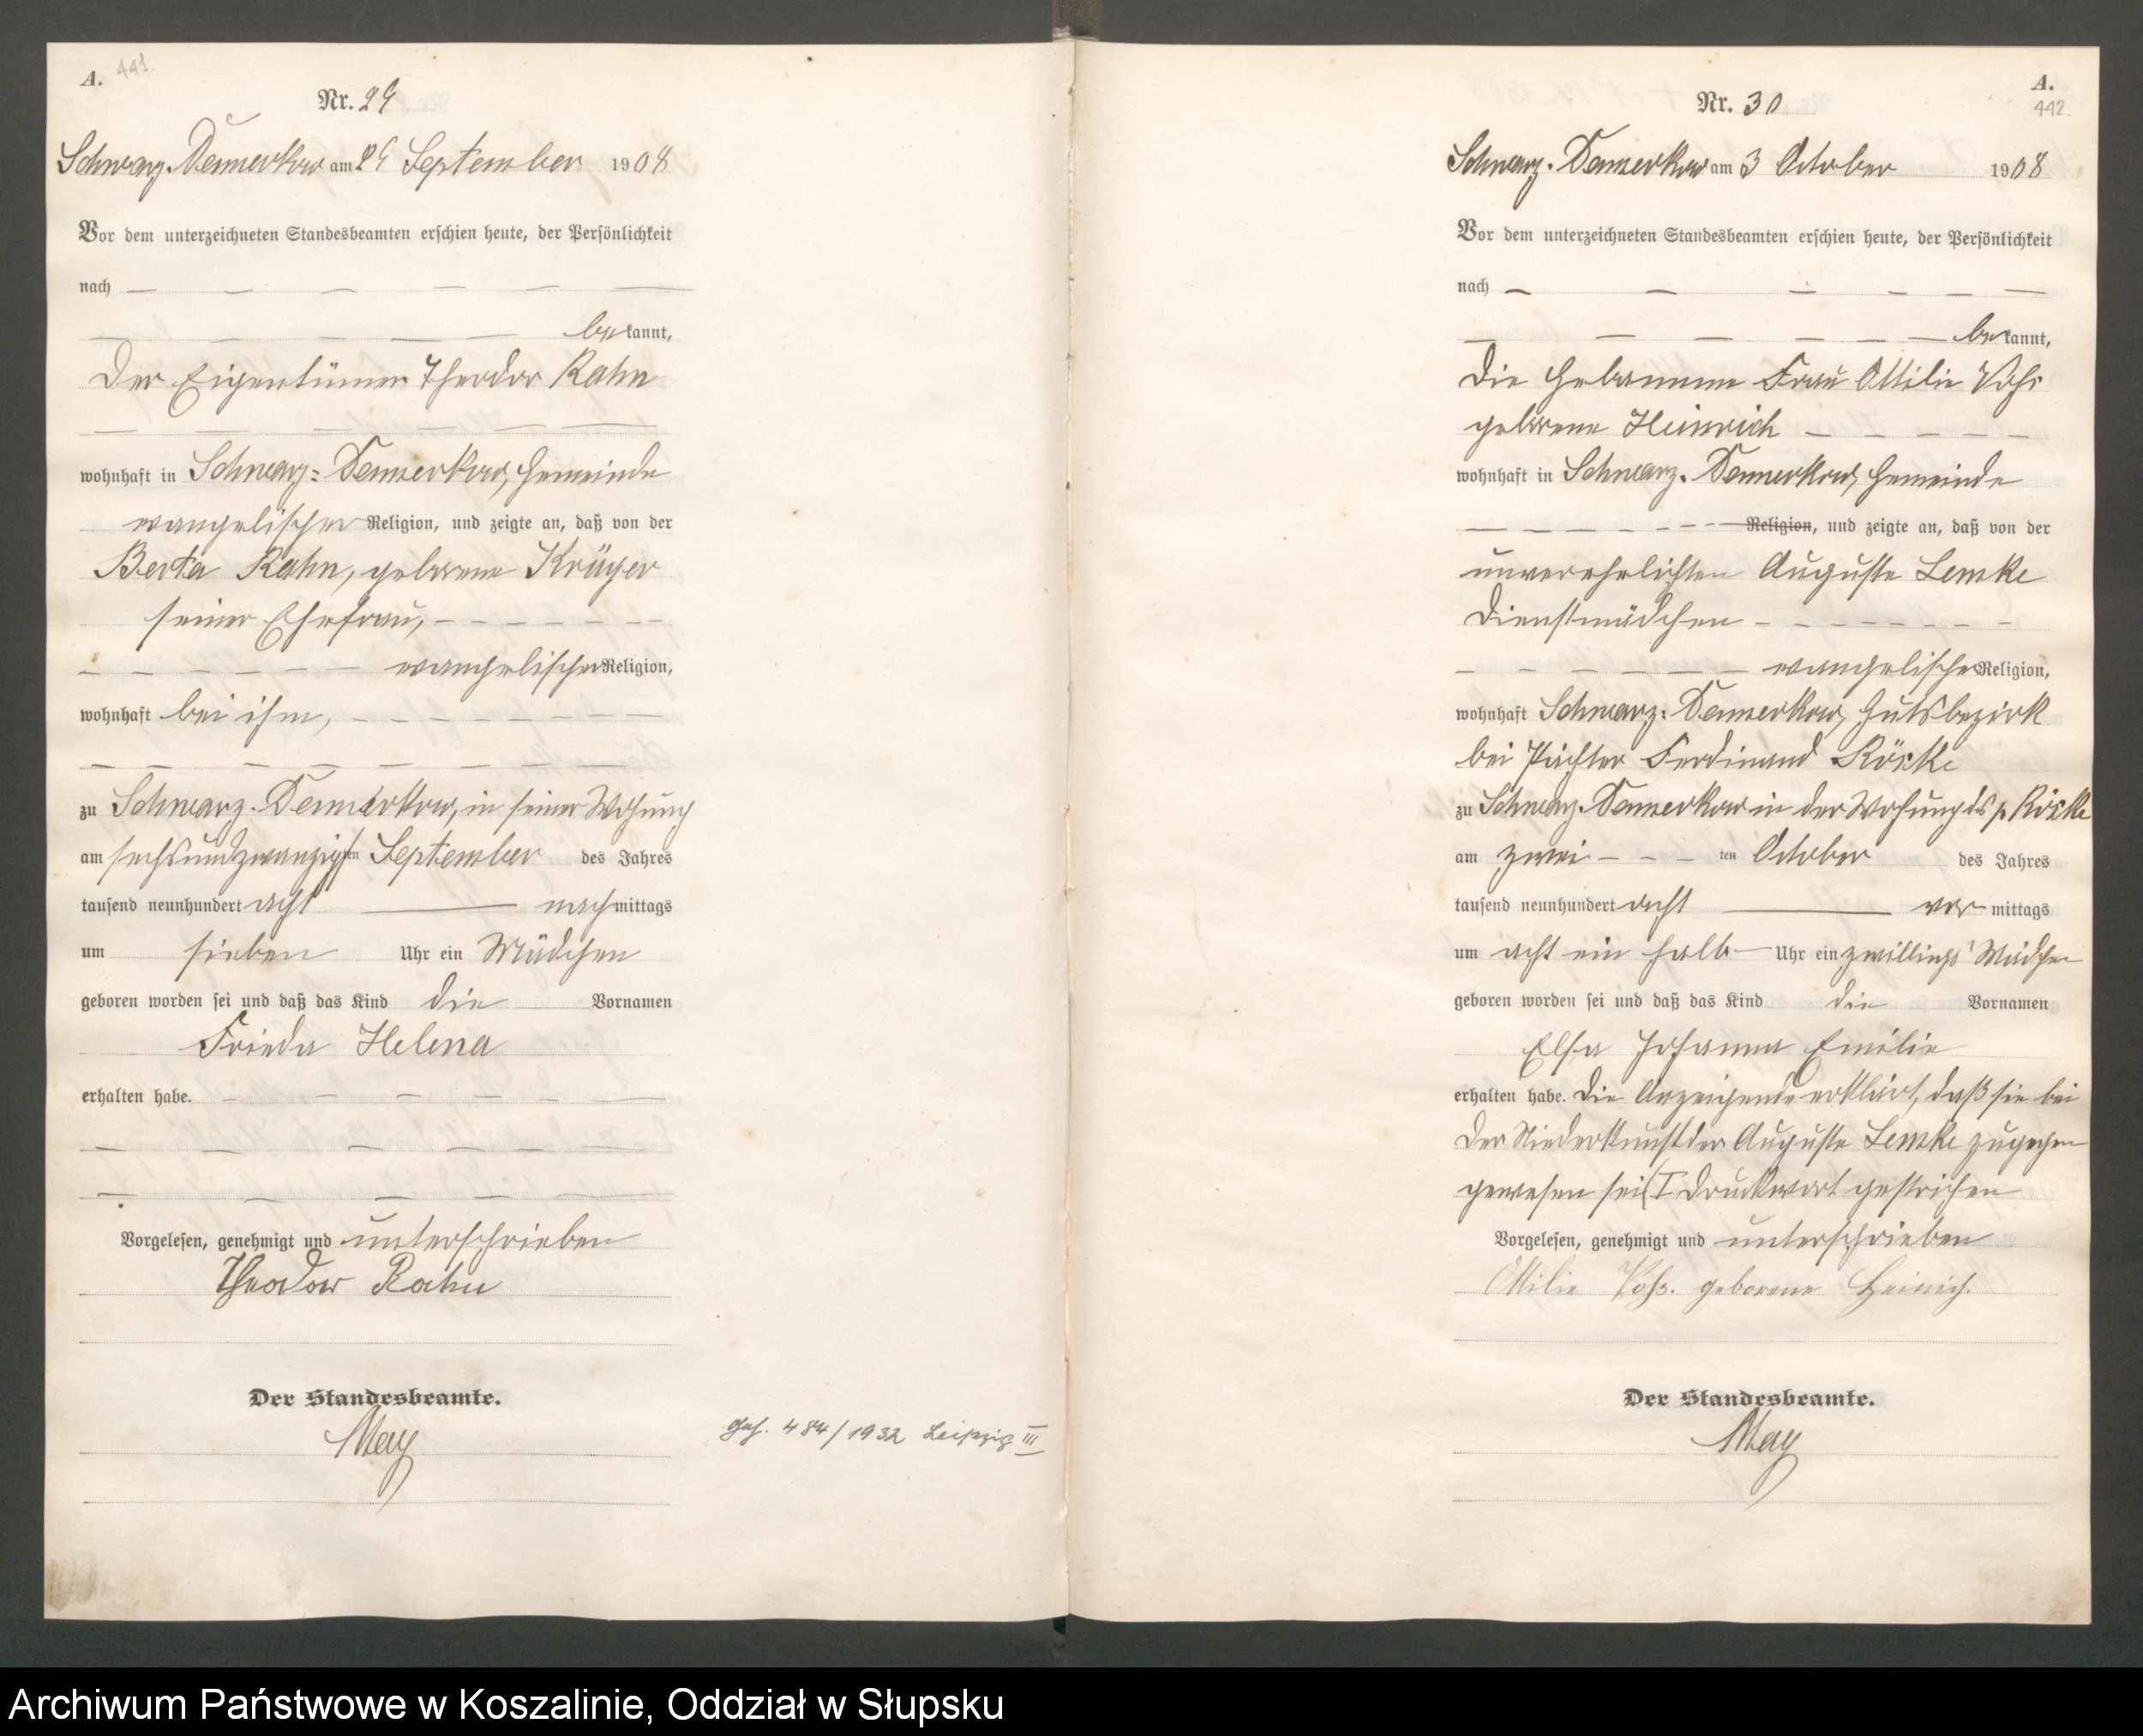 A. 441.
Nr. 29
Schwarz-Damerkow am 29 September 1908
Vor dem unterzeichneten Standesbeamten erschien heute, der Persönlichkeit
nach — — — — — —
— — — — — bekannt,
der Eigentümer Theodor Rahn
— — — — — —
wohnhaft in Schwarz-Damerkow, Gemeinde
evangelischer Religion, und zeigte an, daß von der
Berta Rahn, geborene Krüger
seiner Ehefrau, — — — — — —
— — — — — — evangelischer Religion,
wohnhaft bei ihm, — — — — — —
— — — — — — —
zu Schwarz-Damerkow, in seiner Wohnung
am sechsundzwanzigsten September des Jahres
tausend neunhundert acht — nachmittags
um sieben Uhr ein Mädchen
geboren worden sei und daß das Kind die Vornamen
Frieda Helena
erhalten habe. — — — — — —
— — — — — —
— — — — — —
Vorgelesen, genehmigt und unterschrieben
Theodor Rahn
Der Standesbeamte.
May
Geh. 484/1932 Leipzig III
A.
442.
Nr. 30
Schwarz-Damerkow am 3 October 1908
Vor dem unterzeichneten Standesbeamten erschien heute, der Persönlichkeit
nach — — — — — —
— — — — — — bekannt,
die Hebamme Frau Ottilie Vohs
geborene Heinrich — — — — —
wohnhaft in Schwarz-Damerkow, Gemeinde
— — — — — — — Religion, und zeigte an, daß von der
unverehelichten Auguste Lemke
Dienstmädchen — — — — — — —
— — — — — — evangelischer Religion,
wohnhaft Schwarz-Damerkow, Gutsbezirk
bei Pächter Ferdinand Röske
zu Schwarz-Damerkow in der Wohnung des p. Röske
am zwei — — — ten October des Jahres
tausend neunhundert acht — vor mittags
um acht ein halb — Uhr ein zwillings Mädchen
geboren worden sei und daß das Kind die Vornamen
Elsa Johanna Emilie
erhalten habe. Die Anzeigende erklärt, daß sie bei
der Niederkunft der Auguste Lemke zugegen
gewesen sei (1 Druckwort gestrichen
Vorgelesen, genehmigt und unterschrieben
Ottilie Vohs. geborene Heinrich.
Der Standesbeamte.
May
Archiwum Państwowe w Koszalinie, Oddział w Słupsku